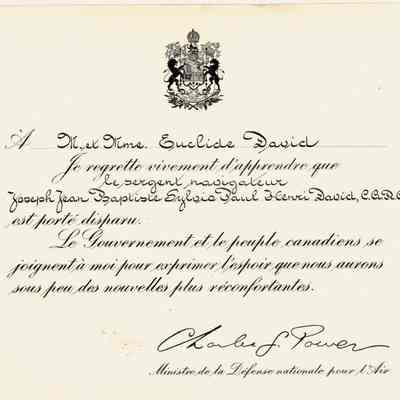 À M. et Mme. Euclide David
Je regrette vivement d'apprendre que
le sergent navigateur
Joseph Jean Baptiste Sylvio Paul Henri David, C.A.R.C.
est porté disparu.
Le Gouvernement et le peuple canadiens se
joignent à moi pour exprimer l'espoir que nous aurons
sous peu des nouvelles plus réconfortantes.
Charles G. Power
Ministre de la Défense nationale pour l'Air